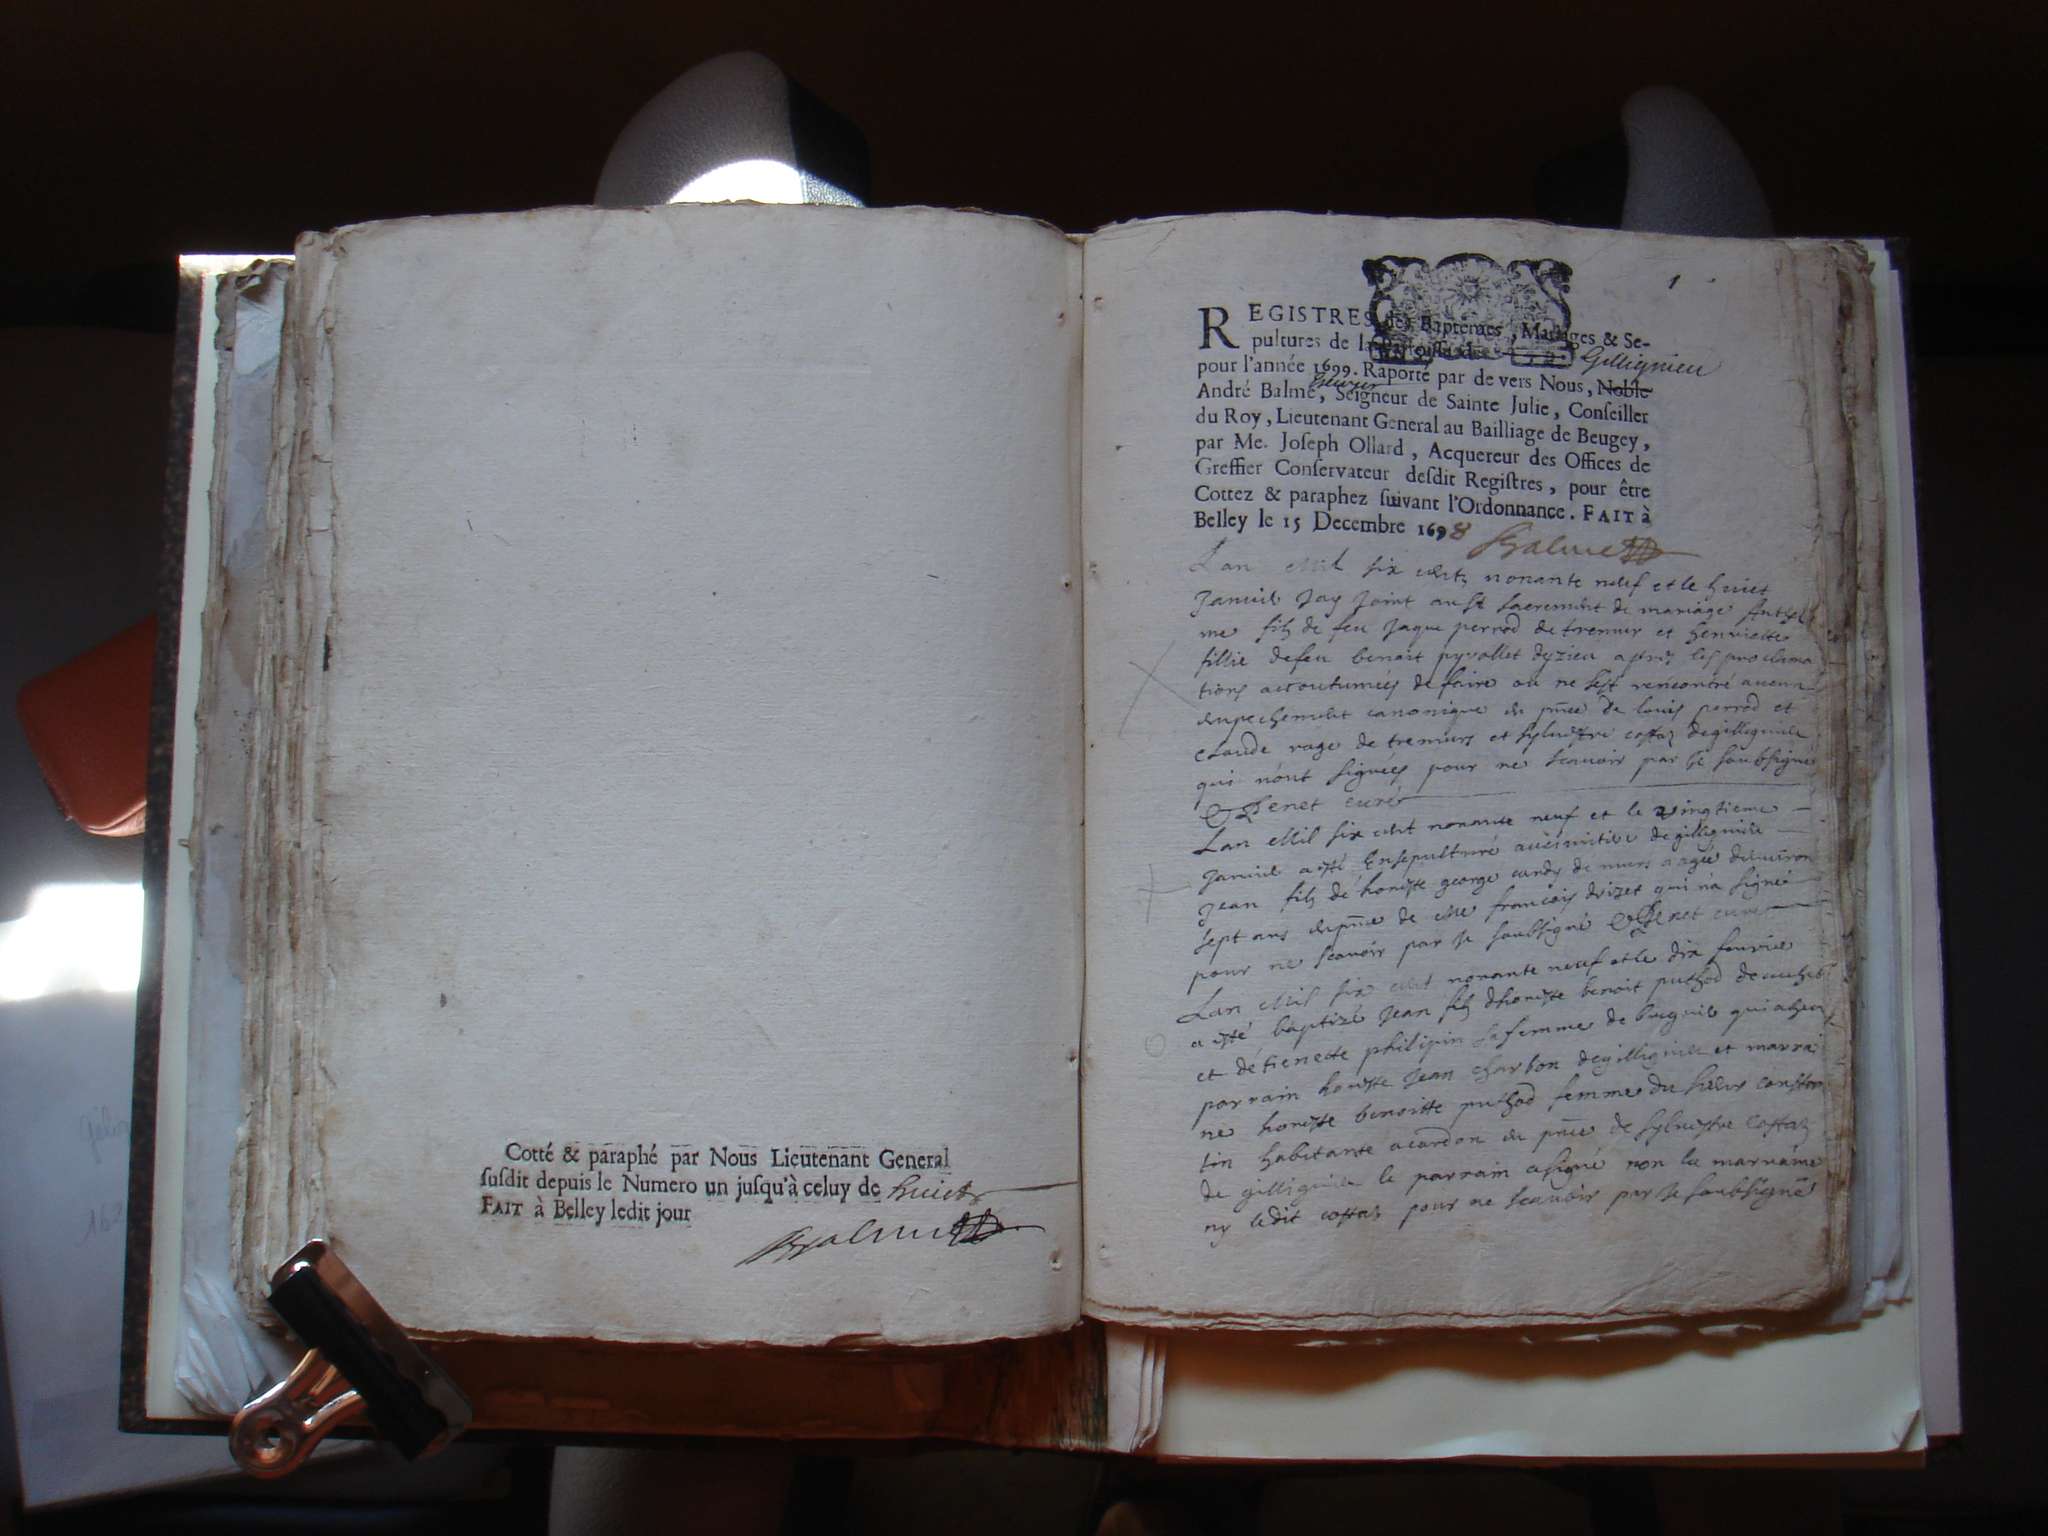 Cotté & paraphé par Nous Lieutenant General
susdit depuis le Numero un jusqu'à celuy de huict
FAIT à Belley ledit jour
Balme
1
REGISTRES des Baptemes, Mariages & Se-
pultures de la Parroisse de Gillignieu
pour l'année 1699. Raporté par de vers Nous, Noble
André Balme, Seigneur de Sainte Julie, Conseiller
du Roy, Lieutenant General au Bailliage de Beugey,
par Me. Joseph Ollard, Acquereur des Offices de
Greffier Conservateur desdit Registres, pour être
Cottez & paraphez suivant l'Ordonnance. FAIT à
Belley le 15 Decembre 1698 Balme
Lan Mil six cent nonante neuf et le huict
Janvie Jay Joint au St sacrement de mariage Anthel
me filz de feu Jaque perrod de tremur et henriette
fillie defeu benoit pyrollet dyzieu apres les proclama
tions accoutumées de faire ou ne sest rencontré aucun
empechement canonique en pnce de louis perrod et
claude rage de tremurs et sylvestre costaz degillignieu
qui n'ont signées pour ne scavoir par Je soubsigné
Genet curé
Lan Mil six cent nonante neuf et le vingtieme
Janvie a esté Ensepulturé au cimitiere de gillignieu
Jean filz de honeste george de murs aagée denviron
sept ans en pnce de Me francois drizet qui n'a signé
pour ne scavoir par Je soubsigné Genet curé
Lan Mil six cent nonante neuf et le dix feuvrie
a esté baptizé Jean filz dhoneste benoit puthod de
et détienette philipin sa femme de qui a heu
parrain honeste Jean charbon degillignieu et marrai
ne honeste benoitte puthod femme du sieur constan
tin habitante acordon en pnce de sylvestre costaz
de gillignieu le parrain a signé non la marraine
ny ledit costaz pour ne scavoir par Je soubsigné